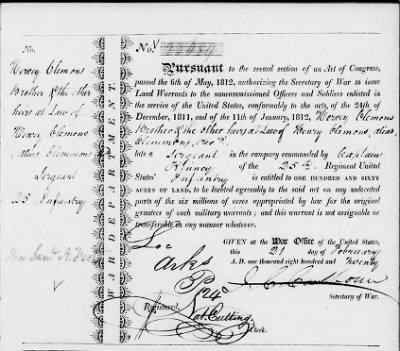 No.
Hervey Clemons
Brother & the other
heirs at Law of
Henry Clemons
alias Clemmons
Sergeant
25 Infantry
Hon Saml A.
LAND WARRANT
No.
Pursuant to the second section of an Act of Congress,
passed the 6th of May, 1812, authorizing the Secretary of War to issue
Land Warrants to the noncommissioned Officers and Soldiers enlisted
in the service of the United States, conformably to the acts, of the 24th of
December, 1811, and of the 11th of January, 1812, Hervey Clemons
Brother & the other heirs at Law of Henry Clemons, alias,
Clemmons,
late a Sergeant in the company commanded by Captain
Kinney of the 25th Regiment United
States' Infantry is entitled to ONE HUNDRED AND SIXTY
ACRES OF LAND, to be located agreeably to the said act on any unlocated
parts of the six millions of acres appropriated by law for the original
grantees of such military warrants; and this warrant is not assignable or
transferable in any manner whatever.
GIVEN at the War Office of the United States,
this 21 day of February
A. D. one thousand eight hundred and Twenty
Loc
Arks
J. C. Calhoun
Secretary of War.
Registered,
Nat. Cutting,
Clerk.